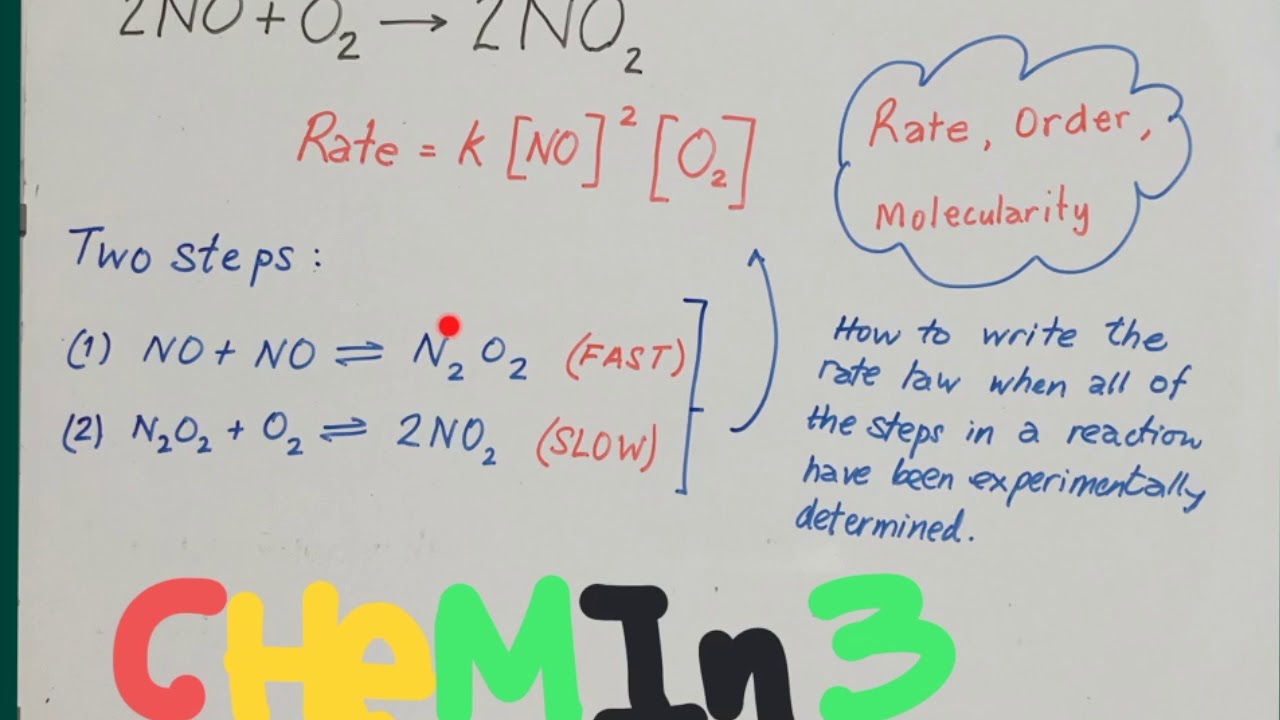 2NO + O₂ → 2NO₂
Rate = k [NO]² [O₂]
Rate, Order,
Molecularity
Two steps :
(1) NO + NO ⇌ N₂O₂ (FAST)
(2) N₂O₂ + O₂ ⇌ 2NO₂ (SLOW)
How to write the
rate law when all of
the steps in a reaction
have been experimentally
determined.
CHeMIn3